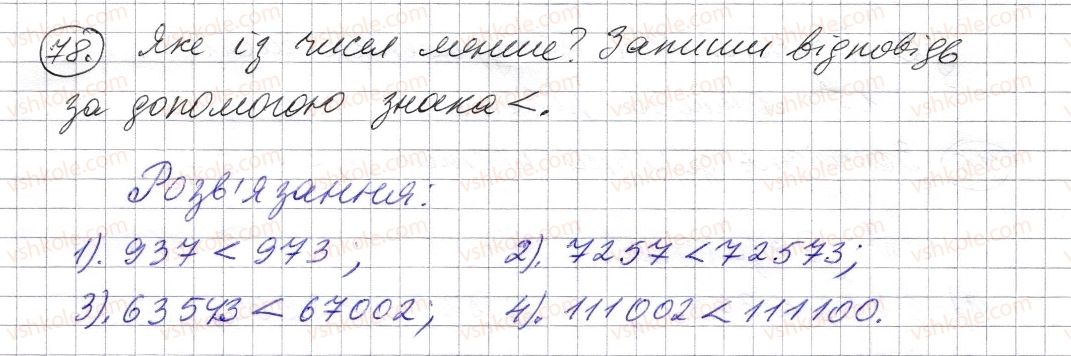 78. Яке із чисел менше? Запиши відповідь
за допомогою знака <.
Розв'язання:
1). 937 < 973 ; 2). 7257 < 72573;
3). 63543 < 67002; 4). 111002 < 111100.